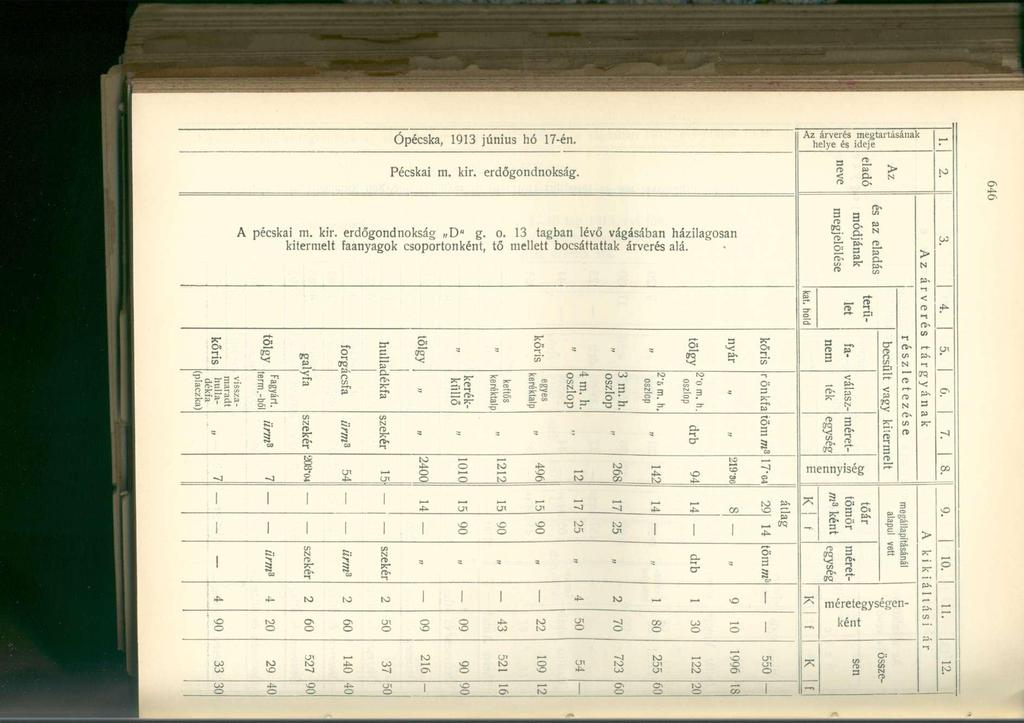 646
1. 2. 3. 4. 5. 6. 7. 8. 9. 10. 11. 12.
Az árverés megtartásának
helye és ideje
Az
eladó
neve
Az árverés tárgyának
és az eladás
módjának
megjelölése
részletezése
terü-
let
kat. hold
becsült vagy kitermelt
fa-
nem
válasz-
ték
méret-
egység
mennyiség
A kikiáltási ár
megállapításánál
alapul vett
tőár
tömör
m³ ként
K f
méret-
egység
méretegységen-
ként
K f
össze-
sen
K f
Ópécska, 1913 június hó 17-én.
Pécskai m. kir. erdőgondnokság.
A pécskai m. kir. erdőgondnokság „D“ g. o. 13 tagban lévő vágásában házilagosan
kitermelt faanyagok csoportonként, tő mellett bocsáttattak árverés alá.
átlag
kőris rönkfa töm m³ 17·04 29 14 töm m³ — — 550 —
nyár „ „ 219·36 8 — „ 9 10 1996 18
tölgy 2·0 m. h.
oszlop drb 94 14 — drb 1 30 122 20
„ 2·5 m. h.
oszlop „ 142 14 — „ 1 80 255 60
„ 3 m. h.
oszlop „ 268 17 25 „ 2 70 723 60
„ 4 m. h.
oszlop „ 12 17 25 „ 4 50 54 —
kőris egyes
keréktalp „ 496 15 90 „ — 22 109 12
„ kettős
keréktalp „ 1212 15 90 „ — 43 521 16
„ kerék-
küllő „ 1010 15 90 „ — 09 90 90
tölgy „ „ 2400 14 — „ — 09 216 —
hulladékfa szekér 15 — — szekér 2 50 37 50
forgácsfa ürm³ 54 — — ürm³ 2 60 140 40
galyfa szekér — — szekér 2 60 527 90
tölgy Fagyárt.
term.-ből ürm³ 7 — — ürm³ 4 20 29 40
kőris vissza-
maradt
hulla-
dékfa
(placzka) „ 7 — — — 4 90 33 30